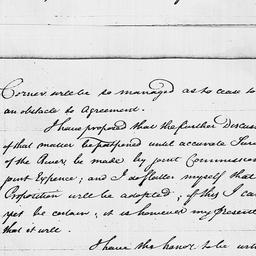 Corner will be so managed as to cease to
an obstacle to Agreement.
I have proposed that the further Discus
of that matter be postponed until accurate Sur
of the River be made by joint Commission
joint Expence; and I do flatter myself that
Proposition will be adopted; of this I can
yet be certain; it is however my present
that it will.
I have the honor to be with